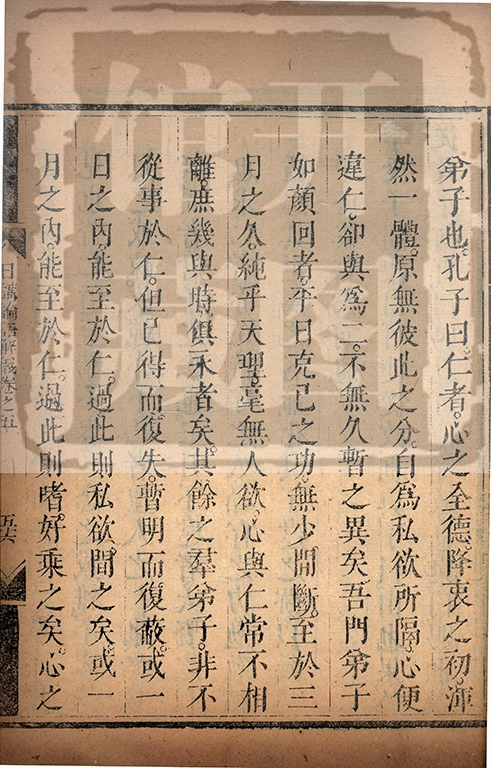 弟子也。孔子曰。仁者。心之全德。降衷之初。渾
然一體。原無彼此之分。自為私欲所隔。心便
違仁。卻與為二。不無久暫之異矣。吾門弟子
如顏回者。平日克己之功。無少間斷。至於三
月之久。純乎天理。毫無人欲。心與仁常不相
離。庶幾與時俱永者矣。其餘之羣弟子。非不
從事於仁。但已得而復失。暫明而復蔽。或一
日之內。能至於仁。過此則私欲間之矣。或一
月之內。能至於仁。過此則嗜好乘之矣。心之
日講論語解義卷之五